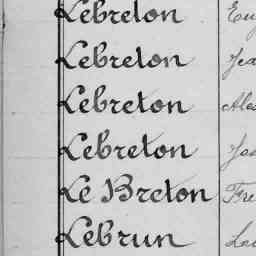 Lebreton Eug
Lebreton Jea
Lebreton Alex
Lebreton
Le Breton Fre
Lebrun